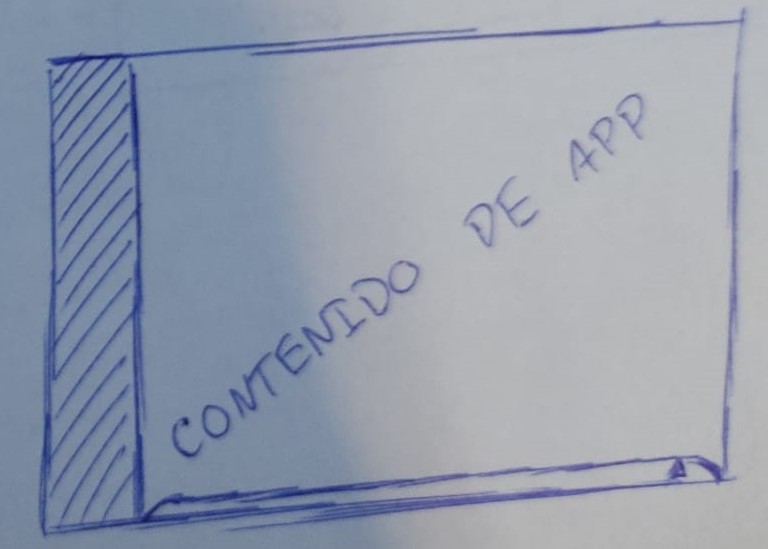 CONTENIDO DE APP